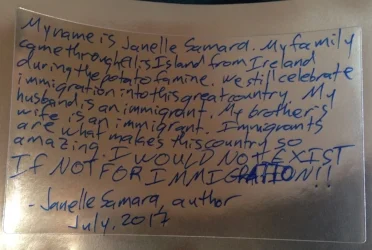 My name is Janelle Samara. My family
came through Ellis Island from Ireland
during the potato famine. We still celebrate
immigration into this great country. My
husband is an immigrant. My brother's
wife is an immigrant. Immigrants
are what makes this country so
amazing. I WOULD NOT EXIST
IF NOT FOR IMMIGRATION!!
- Janelle Samara, author
July, 2017